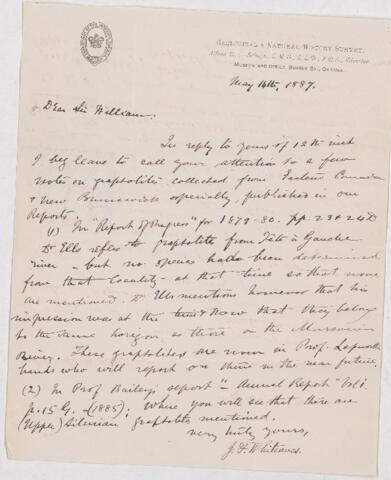 GEOLOGICAL & NATURAL HISTORY SURVEY.
Alfred R. C. Selwyn, C.M.G., LL.D., F.R.S., Director.
MUSEUM AND OFFICE, SUSSEX ST., OTTAWA.
May 14th, 1887.
Dear Sir William,
In reply to yours of 12th inst
I beg leave to call your attention to a few
notes on graptolites collected from Eastern Canada
& New Brunswick especially, published in our
Reports.
(1) In "Report of Progress" for 1879-80. pp. 23 & 24 D
Dr Ells refers to graptolites from Tête à Gauche
river - but no species had been determined
from that locality - at that time so that none
are mentioned. Dr Ells mentions however that his
impression was at the time & now that they belong
to the same horizon as those on the
River. These graptolites are now in Prof. Lapworth
hands who will report on them in the near future.
(2) In Prof Bailey's report "Annual Report" Vol 1.
p. 15 G. - (1885); where you will see that there are
(Upper) Silurian graptolites mentioned.
Very truly yours,
J. F. Whiteaves